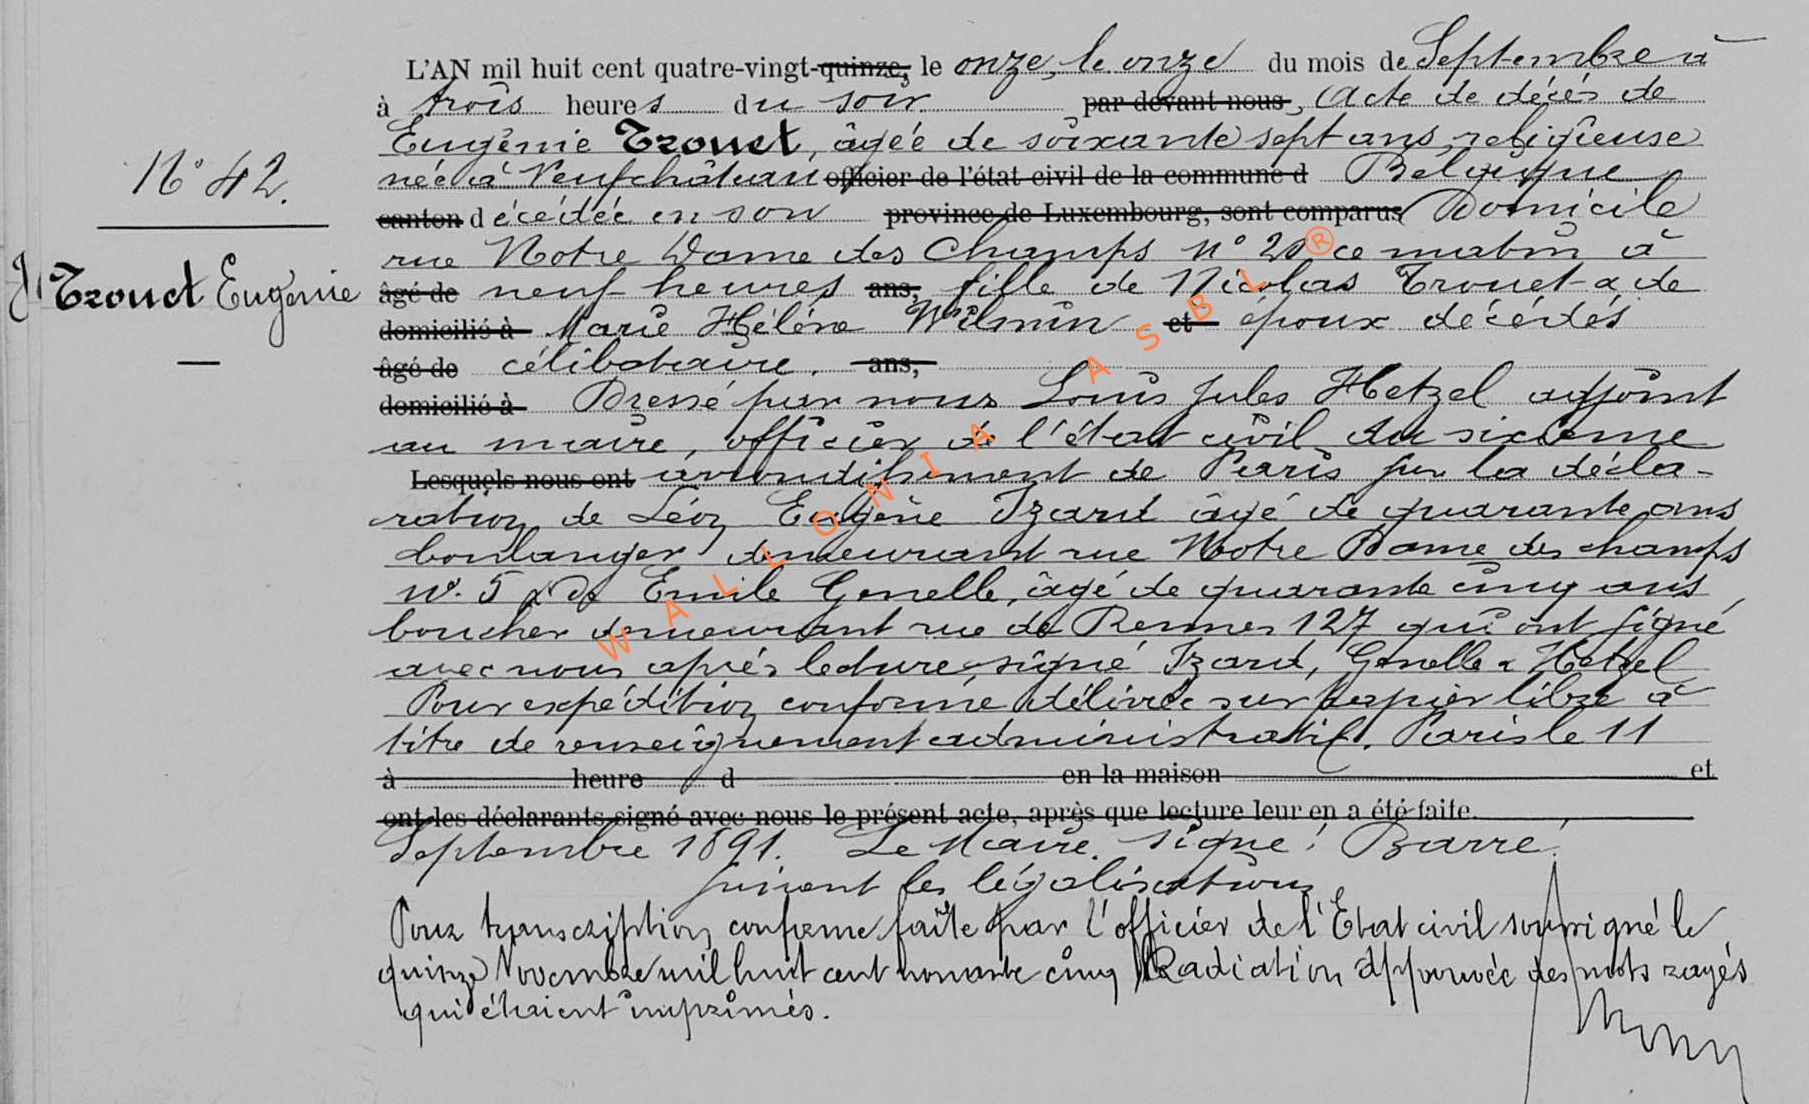 L'AN mil huit cent quatre-vingt-quinze, le onze, le onze du mois de Septembre à
à trois heures du soir par devant nous, Acte de décès de
Eugénie Trouet, âgée de soixante sept ans, religieuse
née à Neufchâteau officier de l'état civil de la commune d Belgique
N° 42.
canton décédée en son province de Luxembourg, sont comparus Domicile
rue Notre Dame des Champs n° 20 ce matin à
Trouet Eugénie
âgé de neuf heures ans, fille de Nicolas Trouet & de
domicilié à Marie Hélène Wilmin et époux décédés
âgé de célibataire. ans,
domicilié à Dressé par nous Louis Jules Hetzel adjoint
au maire, officier de l'état civil du sixième
Lesquels nous ont arrondissement de Paris sur la décla-
ration de Léon Eugène Izard âgé de quarante ans
boulanger demeurant rue Notre Dame des champs
n°. 5 & de Emile Genelle, âgé de quarante cinq ans
boucher demeurant rue de Rennes 127 qui ont signé
avec nous après lecture, signé Izard, Genelle & Hetzel
Pour expédition conforme délivrée sur papier libre à
titre de renseignement administratif. Paris le 11
à heure d en la maison et
ont les déclarants signé avec nous le présent acte, après que lecture leur en a été faite.
Septembre 1891. Le Maire. Signé: Barré.
suivent les légalisations
Pour transcription conforme faite par l'officier de l'Etat civil soussigné le
quinze Novembre mil huit cent nonante cinq Radiation approuvée des mots rayés
qui étaient imprimés.
WALLONIA ASBL ®